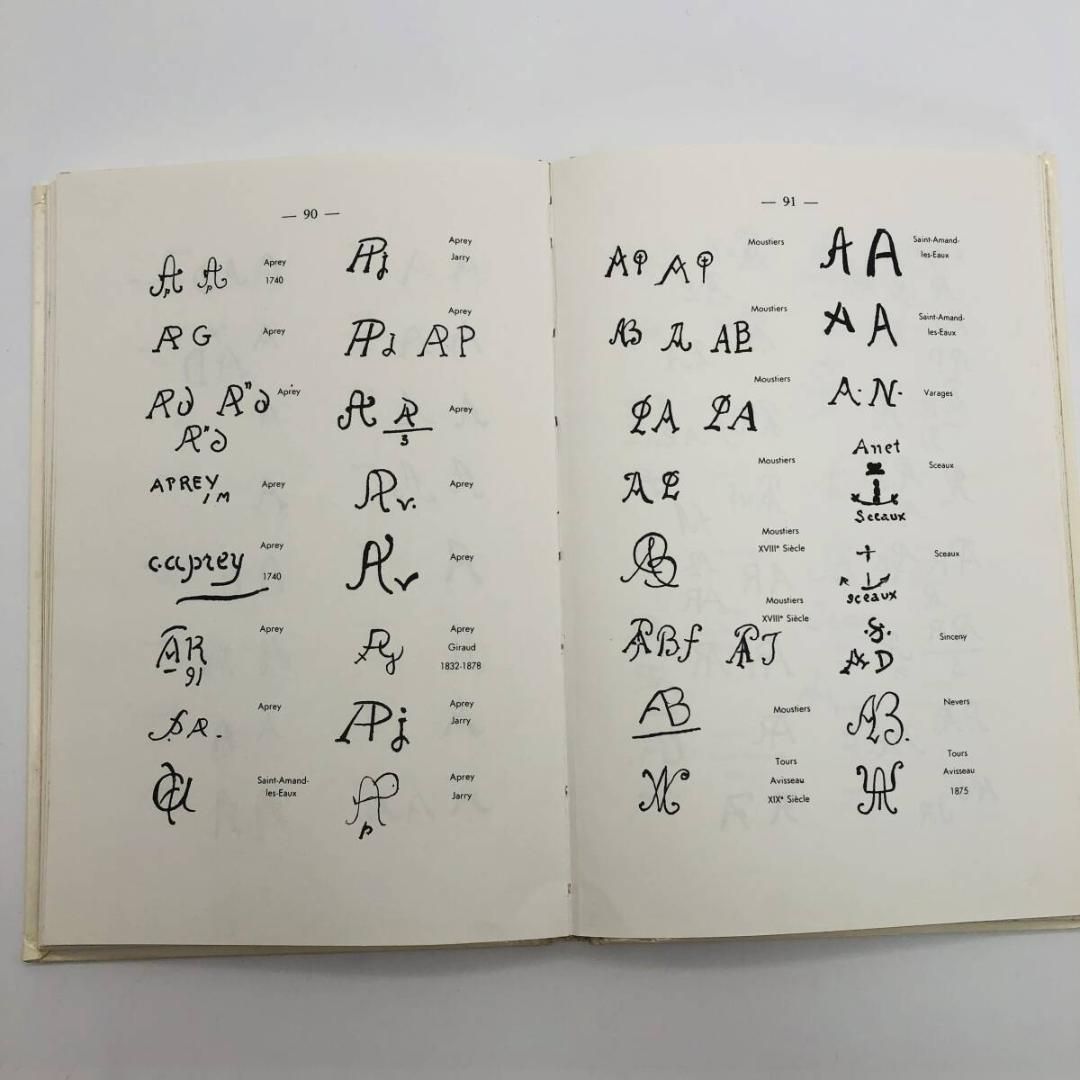 — 90 —
Aprey
1740
Aprey
Jarry
R G
Aprey
Aprey
Aprey
Aprey
3
APREY
/ M
Aprey
v.
Aprey
c.aprey
Aprey
1740
Aprey
AR
91
Aprey
Aprey
Giraud
1832-1878
Aprey
Aprey
Jarry
Saint-Amand-
les-Eaux
p
Aprey
Jarry
— 91 —
Moustiers
A A
Saint-Amand-
les-Eaux
AB A AB
Moustiers
A A
Saint-Amand-
les-Eaux
Moustiers
A. N.
Varages
Moustiers
Anet
Sceaux
Sceaux
Moustiers
XVIIIe Siècle
sceaux
Sceaux
Moustiers
XVIIIe Siècle
.S.
A D
Sinceny
AB
Moustiers
AB.
Nevers
Tours
Avisseau
XIXe Siècle
Tours
Avisseau
1875